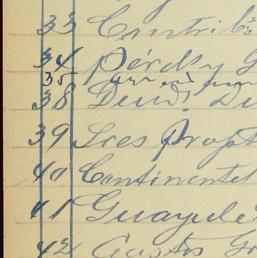 33 Contrib
34 Pérd y G
35
38 Deud. Du
39 Sres Propt
40 Continental
41 Guayule
42 Gastos G